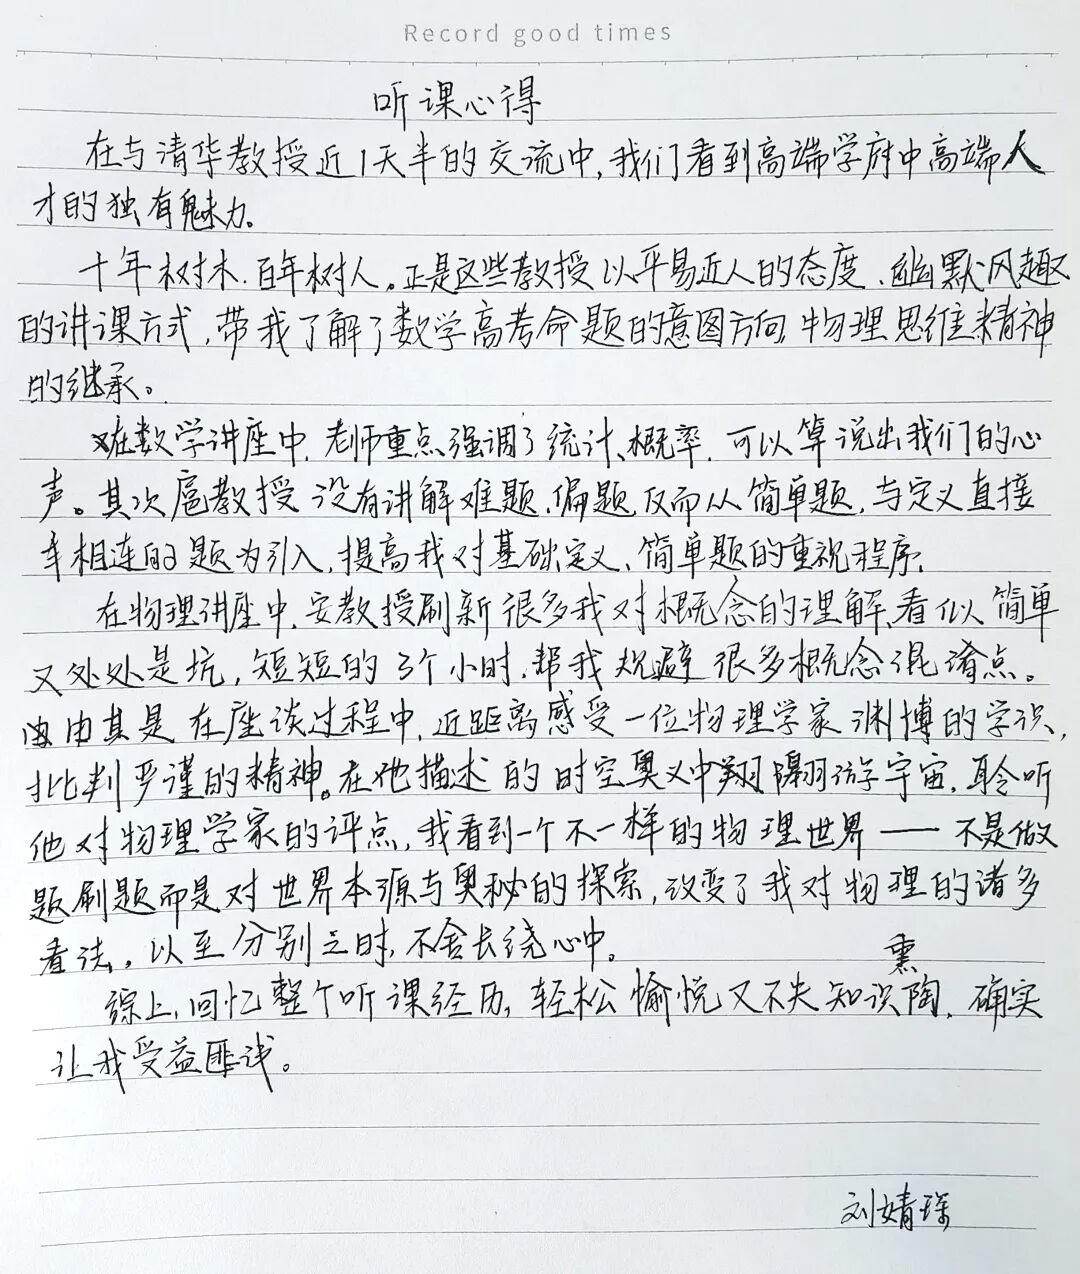 Record good times
听课心得
在与清华教授近1天半的交流中,我们看到高端学府中高端人
才的独有魅力。
十年树木.百年树人。正是这些教授以平易近人的态度、幽默风趣
的讲课方式,带我了解了数学高考命题的意图方向,物理思维、精神
的继承。
在数学讲座中,老师重点强调了统计、概率,可以算说出我们的心
声。其次扈教授没有讲解难题、偏题,反而从简单题,与定义直接
相连的题为引入,提高我对基础定义、简单题的重视程序.
在物理讲座中,安教授刷新很多我对概念的理解,看似简单
又处处是坑,短短的3个小时,帮我规避很多概念混淆点。
由其是在座谈过程中,近距离感受一位物理学家渊博的学识,
批判严谨的精神。在他描述的时空奥义中翱游宇宙,聆听
他对物理学家的评点,我看到一个不一样的物理世界——不是做
题刷题而是对世界本源与奥秘的探索,改变了我对物理的诸多
看法。以至分别之时,不舍长绕心中。
综上,回忆整个听课经历,轻松愉悦又不失知识熏陶,确实
让我受益匪浅。
刘婧琛